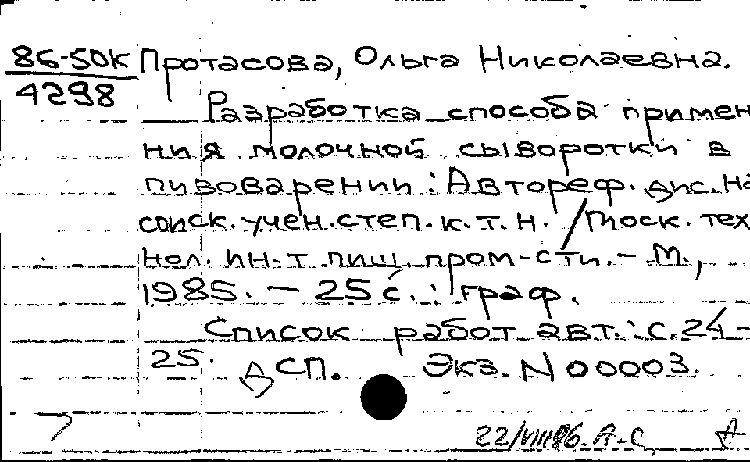 86-50К Протасова, Ольга Николаевна.
4298
Разработка способа примен
ния молочной сыворотки в
пивоварении: Автореф. дис. на
соиск. учен. степ. к. т. н. / Моск. тех
нол. ин-т пищ. пром-сти. – М.,
1985. – 25 с. : граф.
Список работ авт.: с. 24–
25. ДСП. Экз. N 00003.
22/VIII86. А-С